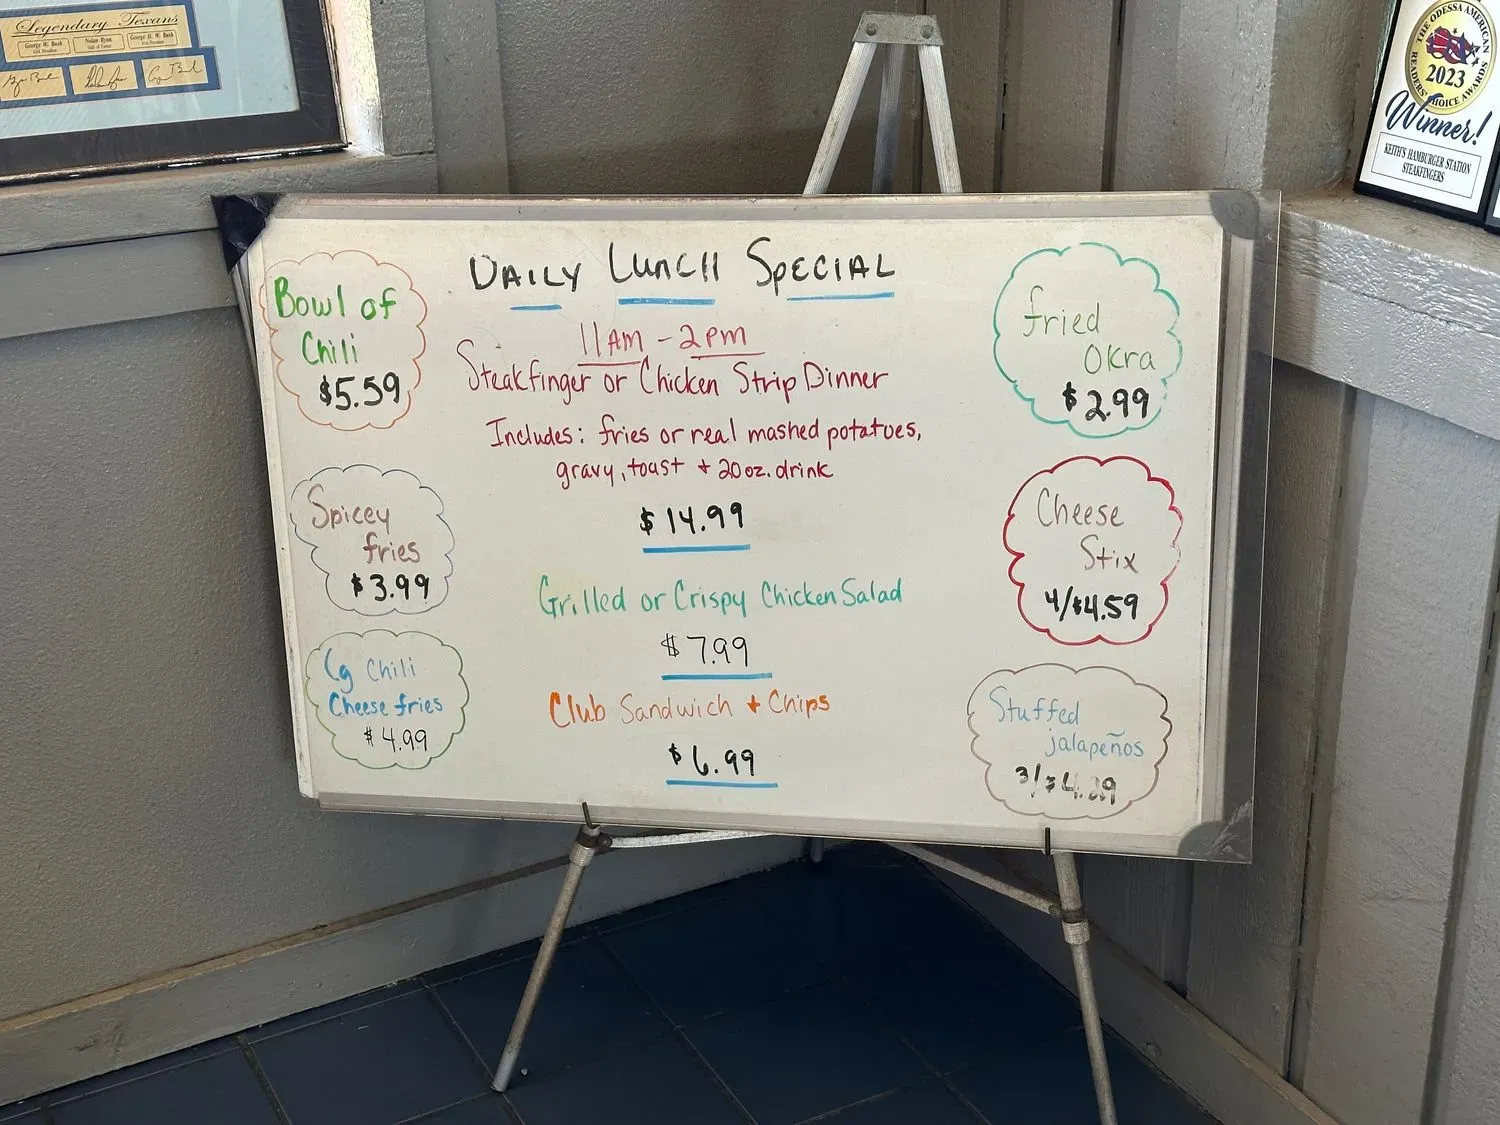 Legendary Texans
George W. Bush
Nolan Ryan
Hall of Famer
George H. W. Bush
THE ODESSA AMERICAN
2023
READERS' CHOICE AWARDS
Winner!
KEITH'S HAMBURGER STATION
STEAKFINGERS
DAILY LUNCH SPECIAL
11AM - 2PM
Steakfinger or Chicken Strip Dinner
Includes: fries or real mashed potatoes,
gravy, toast + 20oz. drink
$14.99
Grilled or Crispy Chicken Salad
$7.99
Club Sandwich + Chips
$6.99
Bowl of
Chili
$5.59
Spicey
fries
$3.99
Lg Chili
Cheese fries
$4.99
fried
Okra
$2.99
Cheese
Stix
4/$4.59
Stuffed
jalapeños